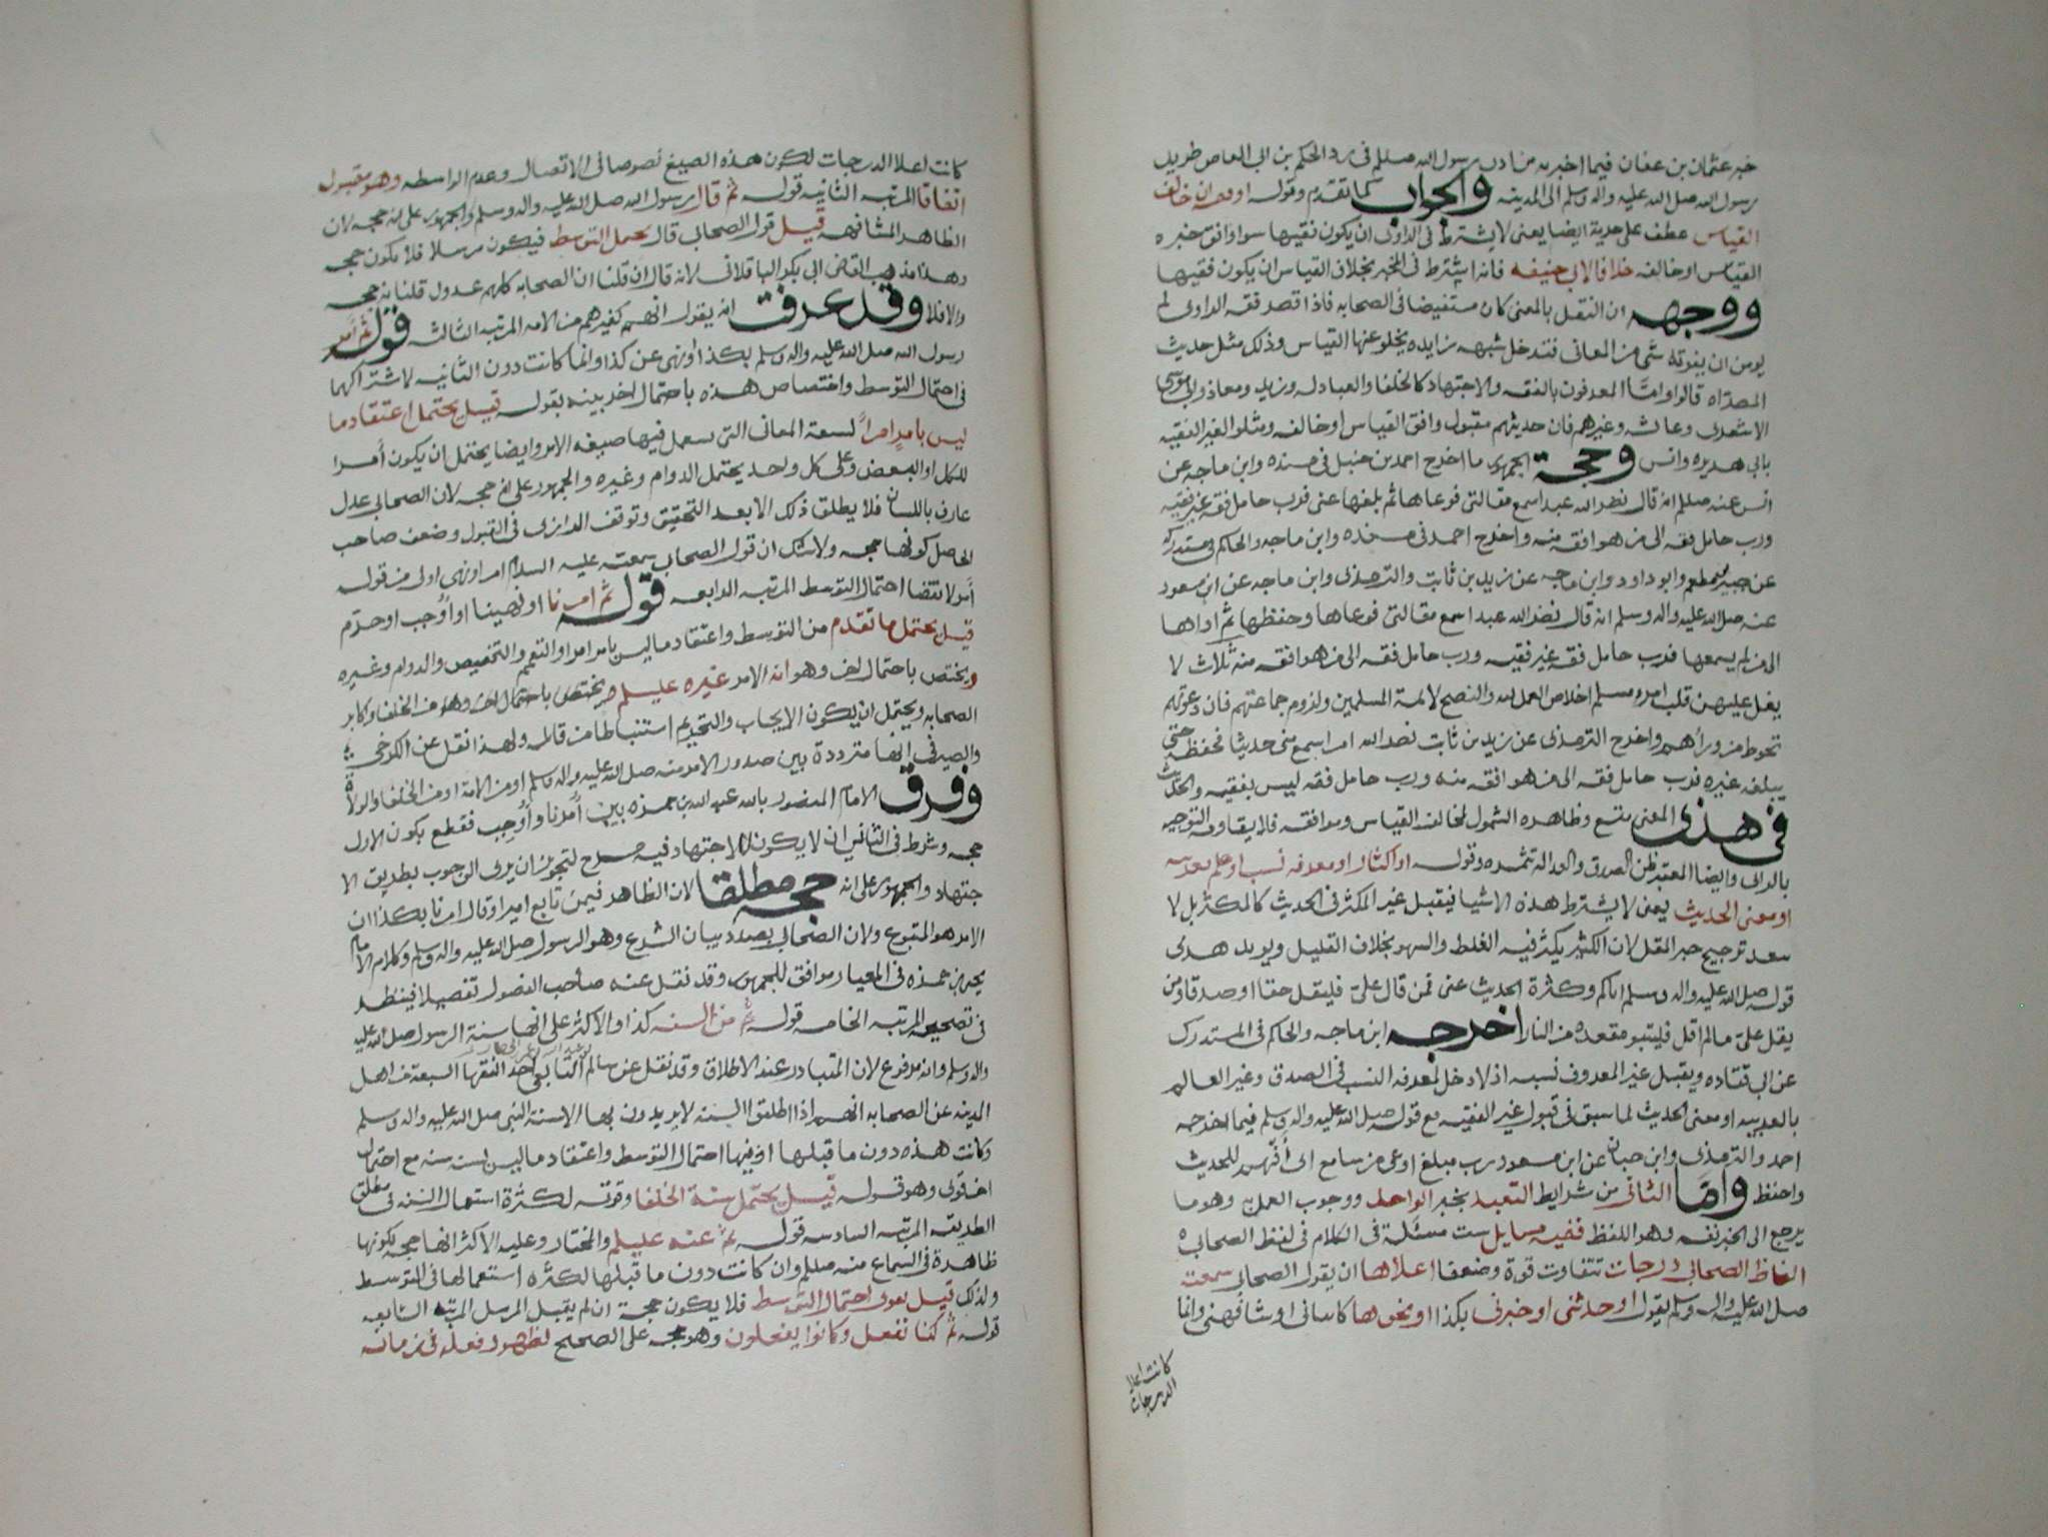 خبر عثمان بن عفان فيما اخبر به من اذن رسول الله صللم فى رد الحكم بن ابى العاص طريد
رسول الله صلى الله عليه واله وسلم الى المدينه والجواب كما تقدم وقوله اوفقه ان خالف
القياس عطف على حرية ايضا يعنى لا يشترط فى الراوى ان يكون فقيها سوا وافق خبره
القياس او خالفه خلافا لابى حنيفه فانه اشترط فى المخبر بخلاف القياس ان يكون فقيها
ووجهه ان النقل بالمعنى كان مستفيضا فى الصحابه فاذا قصر فقه الراوى لم
يومن ان يفوته شى من المعانى فتدخل شبهه زايده يخلو عنها القياس وذلك مثل حديث
المصراه قالوا واما المعروفون بالفقه والاجتهاد كالخلفا والعبادله وزيد ومعاذ وابى موسى
الاشعرى وعائشه وغيرهم فان حديثهم مقبول وافق القياس او خالفه ومثلوا لغير الفقيه
بابى هريره وانس وحجة الجمهور ما اخرج احمد بن حنبل فى مسنده وابن ماجه عن
انس عنه صللم انه قال نضر الله عبدا سمع مقالتى فوعاها ثم بلغها عنى فرب حامل فقه غير فقيه
ورب حامل فقه الى من هو افقه منه واخرج احمد فى مسنده وابن ماجه والحاكم فى مستدركه
عن جبير بن مطعم وابو داود وابن ماجه عن زيد بن ثابت والترمذى وابن ماجه عن ابن مسعود
عنه صلى الله عليه واله وسلم انه قال نضر الله عبدا سمع مقالتى فوعاها وحفظها ثم اداها
الى من لم يسمعها فرب حامل فقه غير فقيه ورب حامل فقه الى من هو افقه منه ثلاث لا
يغل عليهن قلب امرء مسلم اخلاص العمل لله والنصح لائمة المسلمين ولزوم جماعتهم فان دعوتهم
تحوط من ورائهم واخرج الترمذى عن زيد بن ثابت نضر الله امرا سمع منى حديثا فحفظه حتى
يبلغه غيره فرب حامل فقه الى من هو افقه منه ورب حامل فقه ليس بفقيه والحديث
فى هذى المعنى متسع وظاهره الشمول لمخالف القياس وموافقه فلا يقاومه التوجيه
بالراى وايضا المعتبر ظن الصدق والعداله تثمره وقوله او اكثار او معرفه نسب او علم بعربيه
او معنى الحديث يعنى لا يشترط هذه الاشيا فيقبل غير المكثر فى الحديث كالمكثر بل لا
يبعد ترجيح خبر المقل لان الكثير يكثر فيه الغلط والسهو بخلاف القليل ويويد هدى
قوله صلى الله عليه واله وسلم اياكم وكثرة الحديث عنى فمن قال علي فليقل حقا او صدقا ومن
يقل علي مالم اقل فليتبو مقعده من النار اخرجه ابن ماجه والحاكم فى المستدرك
عن ابى قتاده ويقبل غير المعروف نسبه اذ لا دخل لمعرفه النسب فى الصدق وغير العالم
بالعربيه او معنى الحديث لما سبق فى قبول غير الفقيه مع قوله صلى الله عليه واله وسلم فيما اخرجه
احمد والترمذى وابن حبان عن ابن مسعود رب مبلغ اوعى من سامع اى أفهم للحديث
واحفظ واما الثانى من شرايط التعبد بخبر الواحد ووجوب العمل وهو ما
يرجع الى الخبر نفسه وهو اللفظ ففيه مسايل ست مسئلة فى الكلام فى لفظ الصحابى
الفاظ الصحابى درجات تتفاوت قوة وضعفا اعلاها ان يقول الصحابى سمعته
صلى الله عليه واله وسلم يقول او حدثنى او خبرنى بكذا او نحوها كانبانى او شافهنى وانما
كانت اعلا
الدرجات
كانت اعلا الدرجات لكون هذه الصيغ نصوصا فى الاتصال وعدم الواسطه وهو مقبول
اتفاقا المرتبه الثانيه قوله ثم قال رسول الله صلى الله عليه واله وسلم والجمهور على انه حجه لان
الظاهر المشافهه قيل قول الصحابى قال يحمل التوسط فيكون مرسلا فلا يكون حجه
وهذا مذهب القاضى ابى بكر الباقلانى لانه قال ان قلنا ان الصحابه كلهم عدول قلنا به حجه
والا فلا وقد عرفت انه يقول انهم كغيرهم من الامه المرتبه الثالثه قوله ثم أمر
رسول الله صلى الله عليه واله وسلم بكذا او نهى عن كذا وانما كانت دون الثانيه لاشتراكهما
فى احتمال التوسط واختصاص هذه باحتمال اخر بينه بقوله قيل يحتمل اعتقاد ما
ليس بامرٍ امراً لسعة المعانى التى تستعمل فيها صيغه الامر وايضا يحتمل ان يكون أمرا
للكل او البعض وعلى كل واحد يحتمل الدوام وغيره والجمهور على انه حجه لان الصحابى عدل
عارف باللسان فلا يطلق ذلك الا بعد التحقيق وتوقف الرازى فى القبول وضعف صاحب
الحاصل كونها حجه ولا شك ان قول الصحابى سمعته عليه السلام امر او نهى اولى من قوله
أمر لانتفا احتمال التوسط المرتبه الرابعه قوله ثم امرنا او نهينا او أُوجب او حرم
قيل يحتمل ما تقدم من التوسط واعتقاد ما ليس بامر امرا والتعميم والتخصيص والدوام وغيره
ويختص باحتمال اخر وهو انه الامر غيره عليلم ويختص باحتمال اخر وهو من الخلفا وكابر
الصحابه ويحتمل ان يكون الايجاب والتحريم استنباطا من قائله ولهذا نقل عن الكرخى
والصيرفى انها مترددة بين صدور الامر منه صلى الله عليه واله وسلم او من الامة او من الخلفا والولاة
وفرق الامام المنصور بالله عبد الله بن حمزه بين أُمرنا وأُوجب فقطع بكون الاول
حجه وشرط فى الثانى ان لا يكون للاجتهاد فيه مسرح لتجويز ان يرى الوجوب بطريق الا
جتهاد والجمهور على انه حجه مطلقا لان الظاهر فيمن تابع اميرا وقال امرنا بكذا ان
الامر هو المتبوع ولان الصحابى بصدد بيان الشرع وهو الرسول صلى الله عليه واله وسلم وكلام الامام
يحيى بن حمزه فى المعيار موافق للجمهور وقد نقل عنه صاحب الفصول تفصيلا فينظر
فى تصحيحه المرتبه الخامسه قوله ثم من السنه كذا والاكثر على انها سنة الرسول صلى الله عليه
واله وسلم وانه مرفوع لان المتبادر عند الاطلاق وقد نقل عن سالم التابعى احد الفقها السبعه من اهل
المدينه عن الصحابه انهم اذا اطلقوا السنه لا يريدون بها الا سنة النبى صلى الله عليه واله وسلم
وكانت هذه دون ما قبلها اذ فيها احتمال التوسط واعتقاد ما ليس بسنه سنه مع احتمال
اخر قوى وهو قوله قيل يحتمل سنة الخلفا وقوته لكثرة استعمال السنه فى مطلق
الطريقه المرتبه السادسه قوله ثم عنه عليلم والمختار وعليه الاكثر انها حجه لكونها
ظاهرة فى السماع منه صللم وان كانت دون ما قبلها لكثره استعمالها فى التوسط
ولذلك قيل بقوى احتمال التوسط فلا يكون حجة ان لم يقبل المرسل المرتبه السابعه
قوله ثم كنا نفعل وكانوا يفعلون وهو حجه على الصحيح لظهور فعله فى زمانه